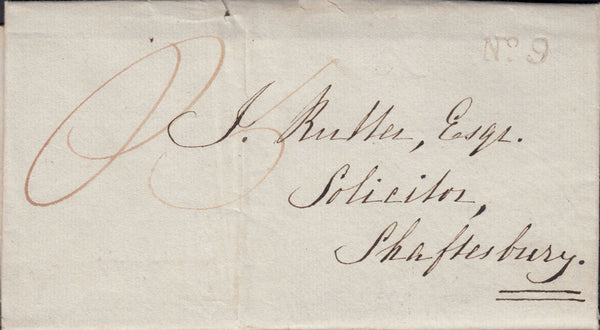 No. 9
J. Rutter, Esqr.
Solicitor,
Shaftesbury.